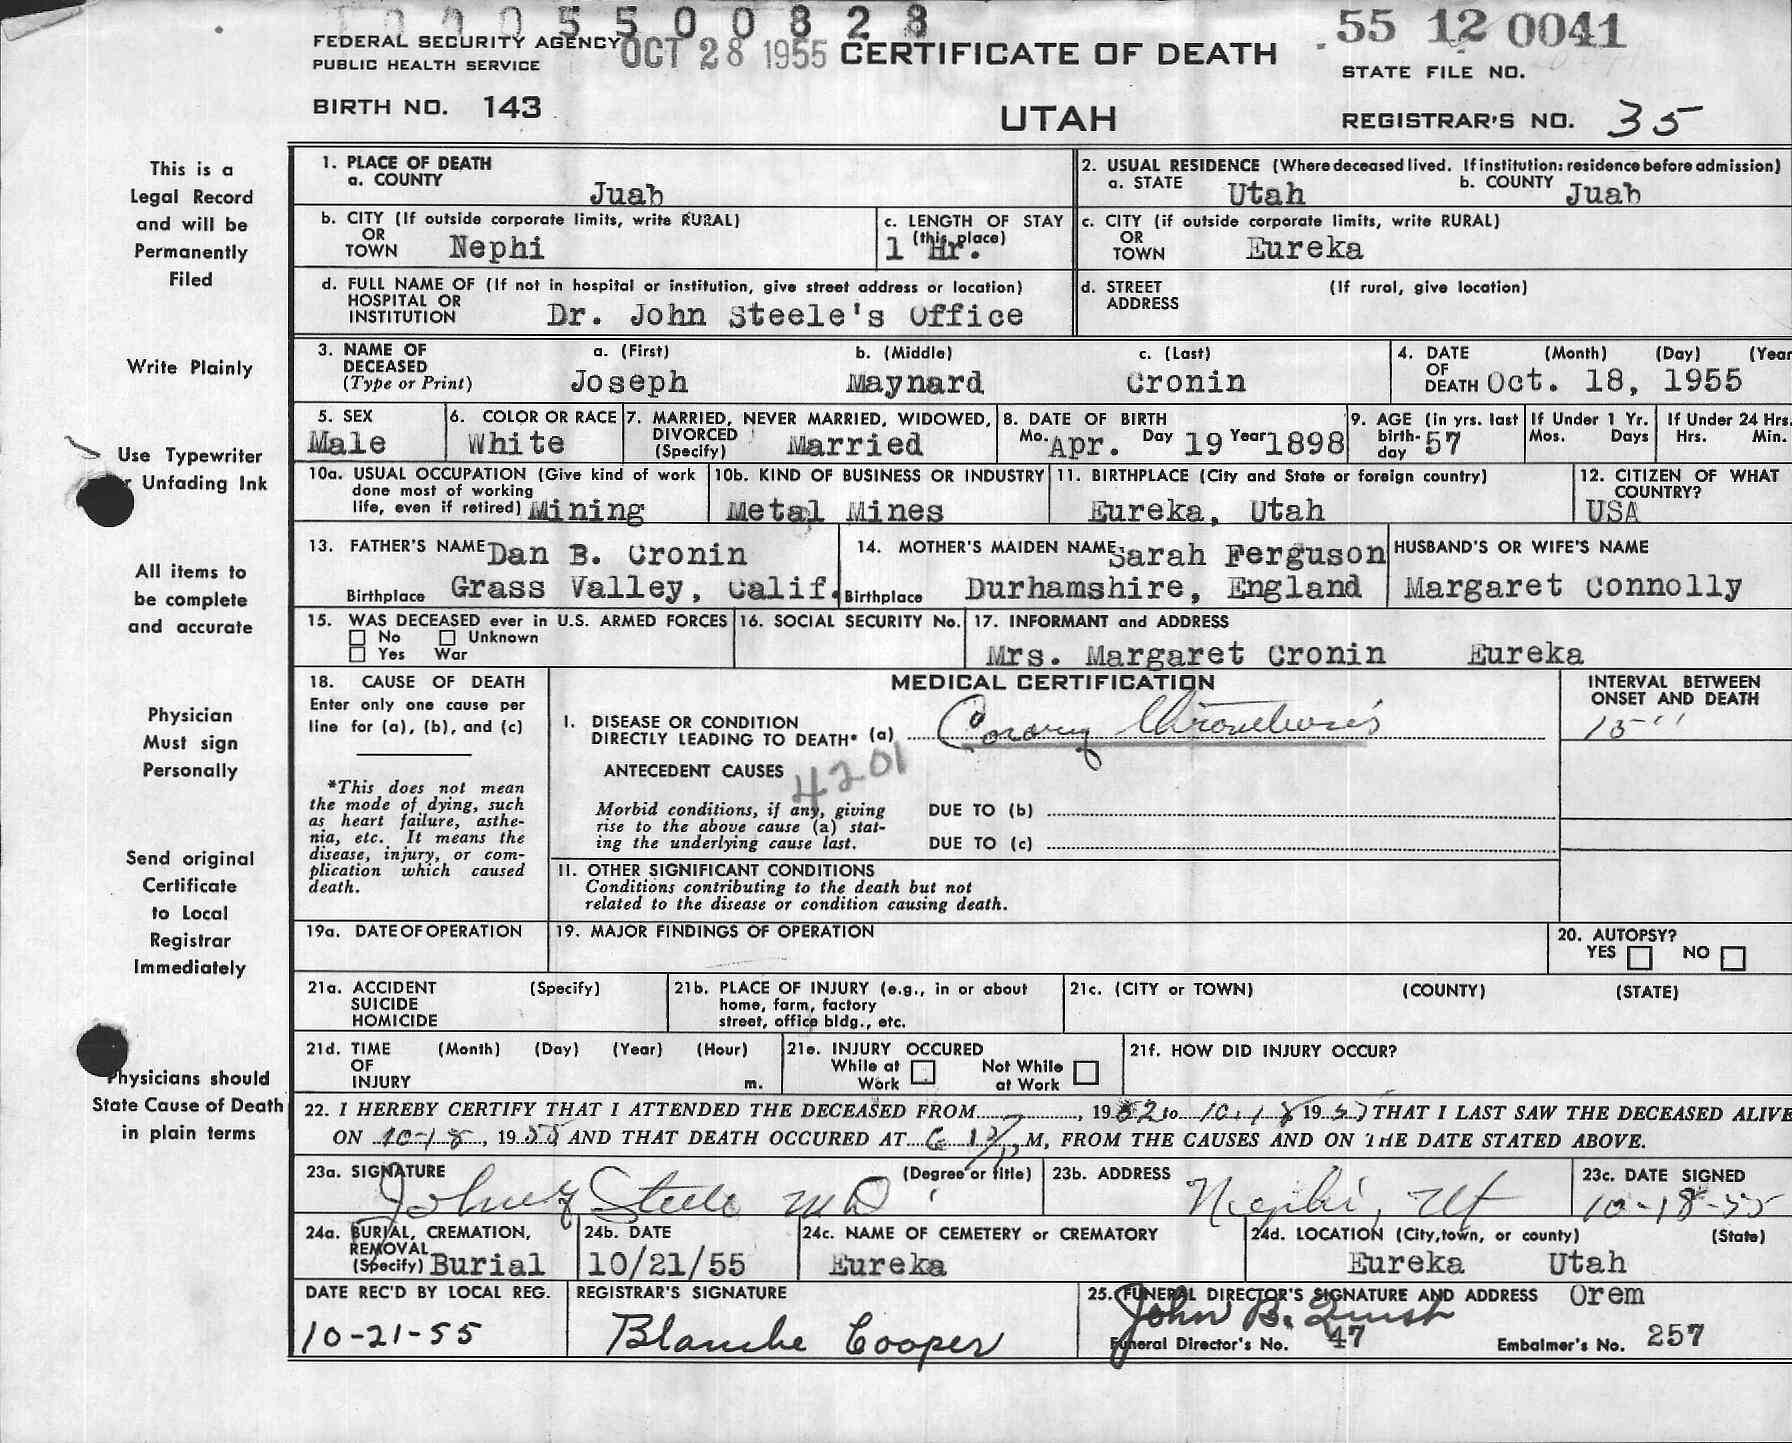 5500828
FEDERAL SECURITY AGENCY OCT 28 1955 CERTIFICATE OF DEATH 55 12 0041
PUBLIC HEALTH SERVICE STATE FILE NO.
BIRTH NO. 143 UTAH REGISTRAR'S NO. 35
This is a
Legal Record
and will be
Permanently
Filed
Write Plainly
Use Typewriter
Unfading Ink
All items to
be complete
and accurate
Physician
Must sign
Personally
Send original
Certificate
to Local
Registrar
Immediately
Physicians should
State Cause of Death
in plain terms
1. PLACE OF DEATH
a. COUNTY Juab
2. USUAL RESIDENCE (Where deceased lived. If institution: residence before admission)
a. STATE Utah b. COUNTY Juab
b. CITY (If outside corporate limits, write RURAL)
OR
TOWN Nephi
c. LENGTH OF STAY
(this place)
1 Hr.
c. CITY (if outside corporate limits, write RURAL)
OR
TOWN Eureka
d. FULL NAME OF (If not in hospital or institution, give street address or location)
HOSPITAL OR
INSTITUTION Dr. John Steele's Office
d. STREET (If rural, give location)
ADDRESS
3. NAME OF a. (First) b. (Middle) c. (Last)
DECEASED
(Type or Print) Joseph Maynard Cronin
4. DATE (Month) (Day) (Year
OF
DEATH Oct. 18, 1955
5. SEX
Male
6. COLOR OR RACE
White
7. MARRIED, NEVER MARRIED, WIDOWED,
DIVORCED
(Specify) Married
8. DATE OF BIRTH
Mo. Apr. Day 19 Year 1898
9. AGE (in yrs. last
birth-
day 57
If Under 1 Yr.
Mos. Days
If Under 24 Hrs.
Hrs. Min.
10a. USUAL OCCUPATION (Give kind of work
done most of working
life, even if retired) Mining
10b. KIND OF BUSINESS OR INDUSTRY
Metal Mines
11. BIRTHPLACE (City and State or foreign country)
Eureka, Utah
12. CITIZEN OF WHAT
COUNTRY?
USA
13. FATHER'S NAME Dan B. Cronin
Birthplace Grass Valley, Calif.
14. MOTHER'S MAIDEN NAME Sarah Ferguson
Birthplace Durhamshire, England
HUSBAND'S OR WIFE'S NAME
Margaret Connolly
15. WAS DECEASED ever in U.S. ARMED FORCES
No Unknown
Yes War
16. SOCIAL SECURITY No.
17. INFORMANT and ADDRESS
Mrs. Margaret Cronin Eureka
18. CAUSE OF DEATH
Enter only one cause per
line for (a), (b), and (c)
*This does not mean
the mode of dying, such
as heart failure, asthe-
nia, etc. It means the
disease, injury, or com-
plication which caused
death.
MEDICAL CERTIFICATION
I. DISEASE OR CONDITION
DIRECTLY LEADING TO DEATH* (a) Coronary Thrombosis
ANTECEDENT CAUSES 4201
Morbid conditions, if any, giving
rise to the above cause (a) stat-
ing the underlying cause last.
DUE TO (b)
DUE TO (c)
INTERVAL BETWEEN
ONSET AND DEATH
15''
II. OTHER SIGNIFICANT CONDITIONS
Conditions contributing to the death but not
related to the disease or condition causing death.
19a. DATE OF OPERATION
19. MAJOR FINDINGS OF OPERATION
20. AUTOPSY?
YES NO
21a. ACCIDENT (Specify)
SUICIDE
HOMICIDE
21b. PLACE OF INJURY (e.g., in or about
home, farm, factory
street, office bldg., etc.
21c. (CITY or TOWN) (COUNTY) (STATE)
21d. TIME (Month) (Day) (Year) (Hour)
OF
INJURY m.
21e. INJURY OCCURED
While at Not While
Work at Work
21f. HOW DID INJURY OCCUR?
22. I HEREBY CERTIFY THAT I ATTENDED THE DECEASED FROM 7, 1952 to 10-18 1955 THAT I LAST SAW THE DECEASED ALIVE
ON 10-18, 1955 AND THAT DEATH OCCURED AT M, FROM THE CAUSES AND ON THE DATE STATED ABOVE.
23a. SIGNATURE (Degree or title)
John Steele MD
23b. ADDRESS
Nephi, Ut
23c. DATE SIGNED
10-18-55
24a. BURIAL, CREMATION,
REMOVAL
(Specify) Burial
24b. DATE
10/21/55
24c. NAME OF CEMETERY or CREMATORY
Eureka
24d. LOCATION (City, town, or county) (State)
Eureka Utah
DATE REC'D BY LOCAL REG.
10-21-55
REGISTRAR'S SIGNATURE
Blanche Cooper
25. FUNERAL DIRECTOR'S SIGNATURE AND ADDRESS Orem
John B.
Funeral Director's No. 47 Embalmer's No. 257